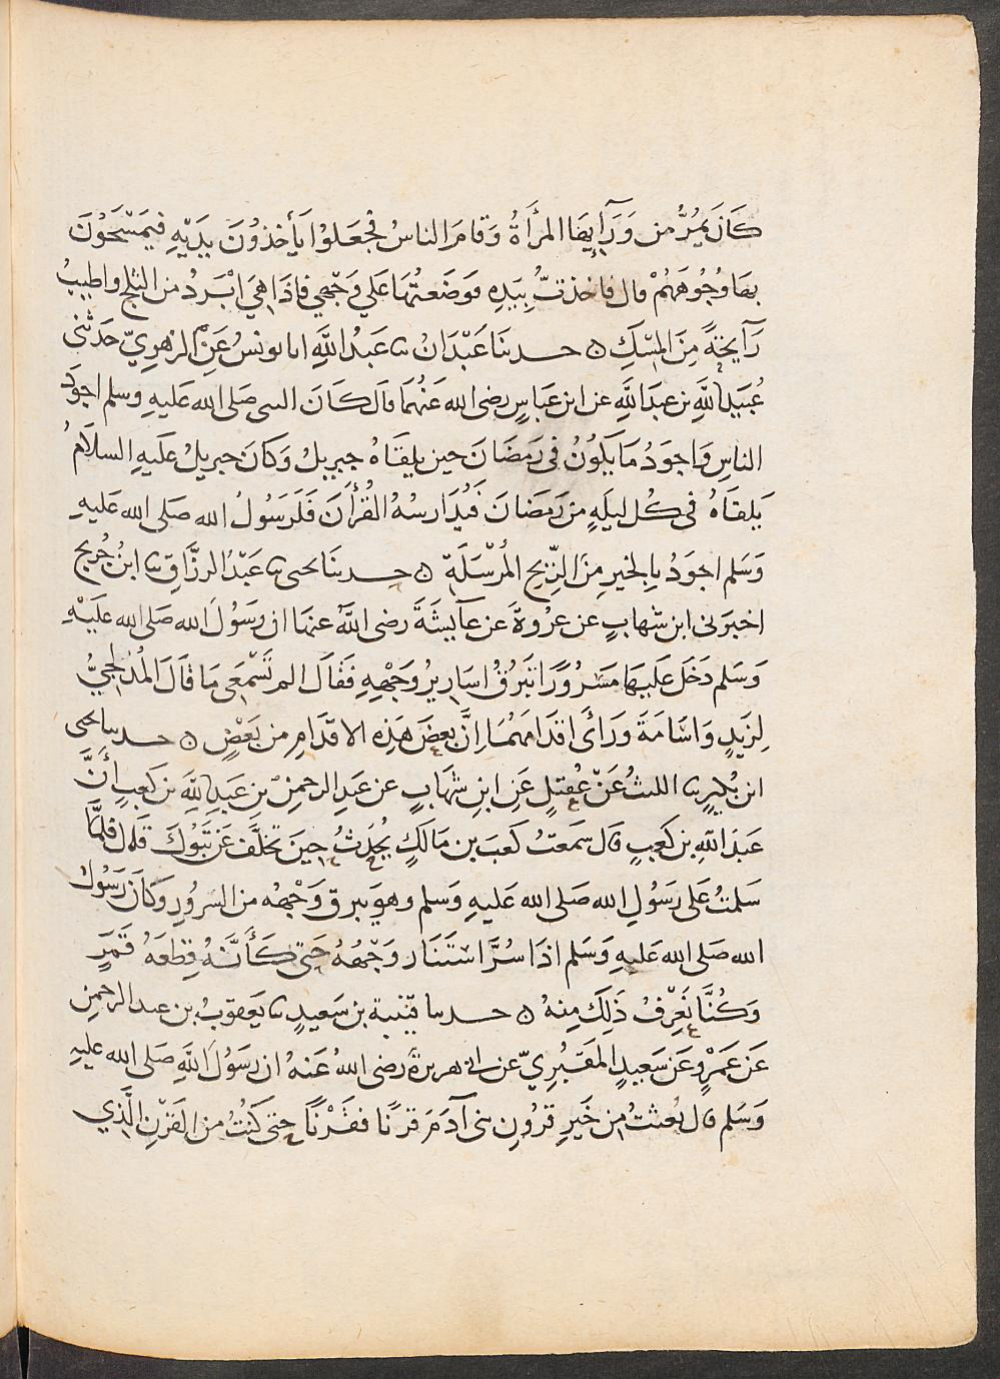 كَانَ يَمُرُّ من وَرَآيِهَا المرأَةُ وَقامَ الناسُ فجَعَلوُا يَأخذوُنَ يَدَيْهِ فيَمْسَحَوُنَ
بهَا وُجُوهَهُمْ قال فاخذتُ بِيَدِهِ فوَضَعتُهَا عَلي وَجْهِي فاذَا هِيَ ابْرَدُ من الثلج واطيبُ
رَآيحَةً مِنَ المِسْكِ ۞ حدثنَا عَبْدَانُ ثنا عَبدُ اللَّهِ انا يونسُ عَنِ الزهرِيّ حَدثني
عُبَيدُ اللَّهِ بن عبدَ اللَّهِ عن ابن عَبَاسٍ رضى الله عَنْهُمَا قاَل كاَنَ النبى صَلى الله عَليهِ وسلم اجوَدَ
الناسِ وَاجوَدُ مَا يَكَوُنُ فى رَمَضَانَ حين يلقَاهُ جبريلُ وَكاَنَ جبريلُ عَليَهِ السلَامُ
يَلقَاهُ فى كُل ليلَهٍ من رَمَضَانَ فَيُدَارسُهُ القُرْأَنَ فَلَرَسُولُ الله صَلى الله عَليهِ
وَسَلم اجوَدُ بِالخيرِ مِنَ الرِّيحِ المُرْسَلَةِ ۞ حدثنَا يحيى ثنا عَبْدُ الرزَّاقِ ثنا ابنُ جُريج
اخبرَنى ابن شهابٍ عن عرُوةَ عَن عَآيشَةَ رضى اللَّهُ عنهَا ان رسَوُلَ الله صَلى الله عَليَهِ
وَسَلم دَخَلَ عَليهَا مَسَرُورًا تَبرُقُ اسَارِيرُ وَجْهِهِ فَقاَلَ الم تَسْمَعِى مَا قَالَ المُدلجِيُّ
لِزَيدٍ وَاسَامَةَ وَرَأَى اقدَامَهُمَا اِنَّ بعضَ هَذِه الاقدَامِ من بَعْضٍ ۞ حدثنا يحيى
ابن بُكَيرٍ ثنا الليثُ عَنْ عُقيلٍ عَنِ ابنِ شهَابٍ عن عَبدِ الرحمنِ بنِ عَبدِ اللَّهِ بن كَعبٍ أَنَّ
عَبدَ اللَّهِ بن كَعبٍ قاَل سَمَعتُ كَعبَ بن مَالَكٍ يُحَدثُ حِينَ تَخلَّف عَن تَبَوُكَ قَال فلمَّا
سَلمتُ عَلى رَسُولِ الله صَلى الله عَليهِ وَسَلم وهوَ يبرق وَجْهُه من السُروُرِ وَكاَنَ رَسوُلُ
الله صَلى الله عَليهِ وَسَلم اذَا سُرَّ اسْتَنَار وَجْهُهُ حَتى كَأَنَّهُ قِطعَهُ قَمَرٍ
وَكُنَّا نَعْرِفُ ذَلِكَ مِنهُ ۞ حدثنا قتيبة بن سَعيدٍ ثنا يَعقوَبُ بن عبد الرحمنِ
عَن عَمَرٍو عَن سَعِيدٍ المَقبُرِيّ عن ابى هريرةَ رضى اللهُ عَنهُ ان رسَوُلَ اللَّهِ صَلى الله عليهِ
وَسَلم قال بُعثتُ من خَيرِ قرُونِ بنى آدَمَ قَرنًا فقَرْنًا حَتى كَنُتُ من القَرْنِ الَّذي